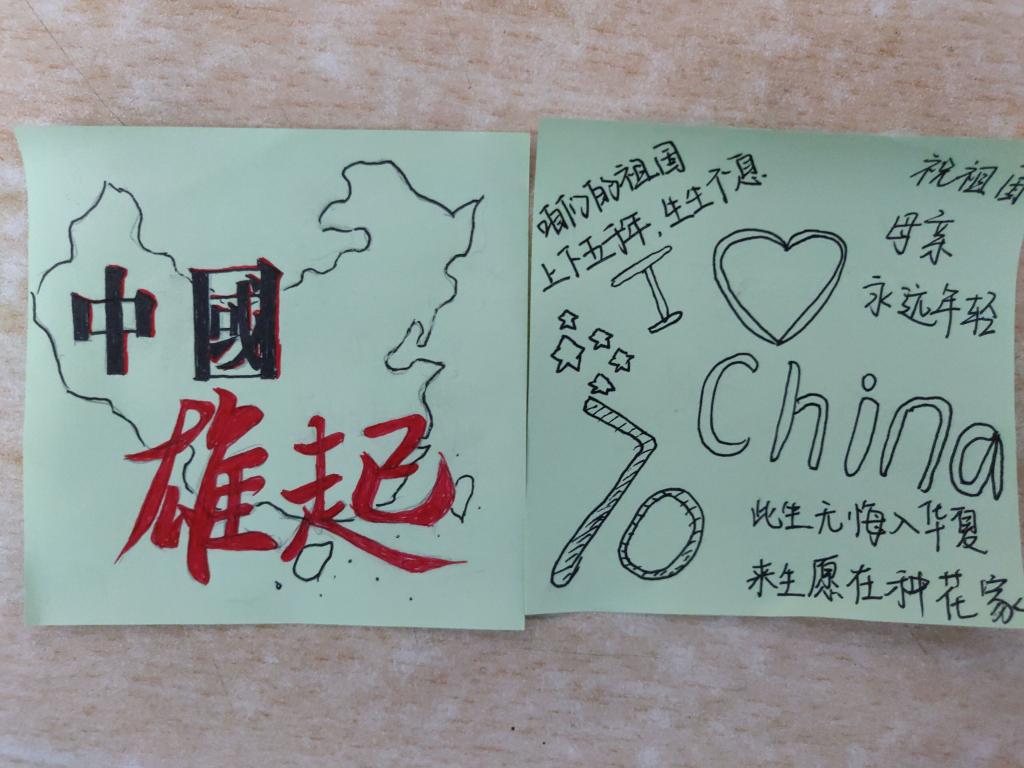 中國
雄起
咱们的祖国
上下五千年，生生不息
祝祖国
母亲
永远年轻
I
China
70
此生无悔入华夏
来生愿在种花家